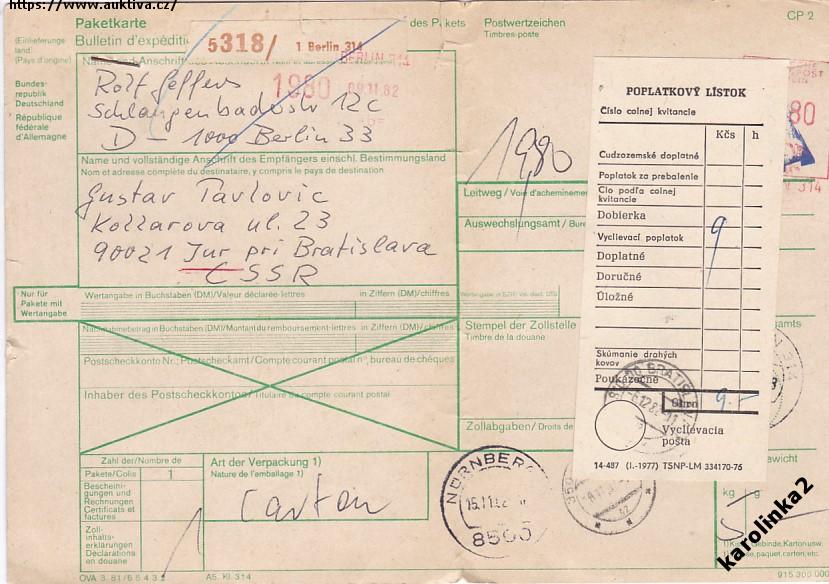 https://www.auktiva.cz/
Paketkarte
des Pakets
Postwertzeichen
CP 2
Bulletin d'expéditi
Timbres-poste
(Einlieferungs-
land)
(Pays d'origine)
5318/ 1 Berlin 314
BERLIN 314
Bundes-
republik
Deutschland
République
fédérale
d'Allemagne
1980 09.11.82
Rolf Geffers
Schlangenbaderstr 12c
D - 1000 Berlin 33
1980
Name und vollständige Anschrift des Empfängers einschl. Bestimmungsland
Nom et adresse complète du destinataire, y compris le pays de destination
Gustav Pavlovic
Kollarova ul. 23
90021 Jur pri Bratislava
CSSR
Leitweg / Voie d'achemineme
Auswechslungsamt / Bure
Nur für
Pakete mit
Wertangabe
Wertangabe in Buchstaben (DM)/Valeur déclarée-lettres
in Ziffern (DM)/chiffres
Nachnahmebetrag in Buchstaben (DM)/Montant du remboursement-lettres
in Ziffern (DM)/chiffres
Postscheckkonto Nr.; Postscheckamt/Compte courant postal n°, bureau de chèques
Inhaber des Postscheckkontos/Titulaire du compte courant postal
Stempel der Zollstelle
Timbre de la douane
Zollabgaben / Droits de
Zahl der/Nombre de
Pakete/Colis 1
Bescheini-
gungen und
Rechnungen
Certificats et
factures
Zoll-
inhalts-
erklärungen
Déclarations
en douane
1
Art der Verpackung 1)
Nature de l'emballage 1)
Carton
NÜRNBERG
8500
POPLATKOVÝ LÍSTOK
Číslo colnej kvitancie
Kčs h
Cudzozemské doplatné
Poplatok za prebalenie
Clo podľa colnej
kvitancie
Dobierka
Vyclievací poplatok 9
Doplatné
Doručné
Úložné
Skúmanie drahých
kovov
Poukázečné
Úhrn 9.-
Vyclievacia
pošta
14-487 (I.-1977) TSNP-LM 334170-76
BRATISLAVA
80
314
amts
ewicht
kg g
5
OVA 3.81/6 5 4 3 2
A5, Kl. 314
915 300 000
karolinka2